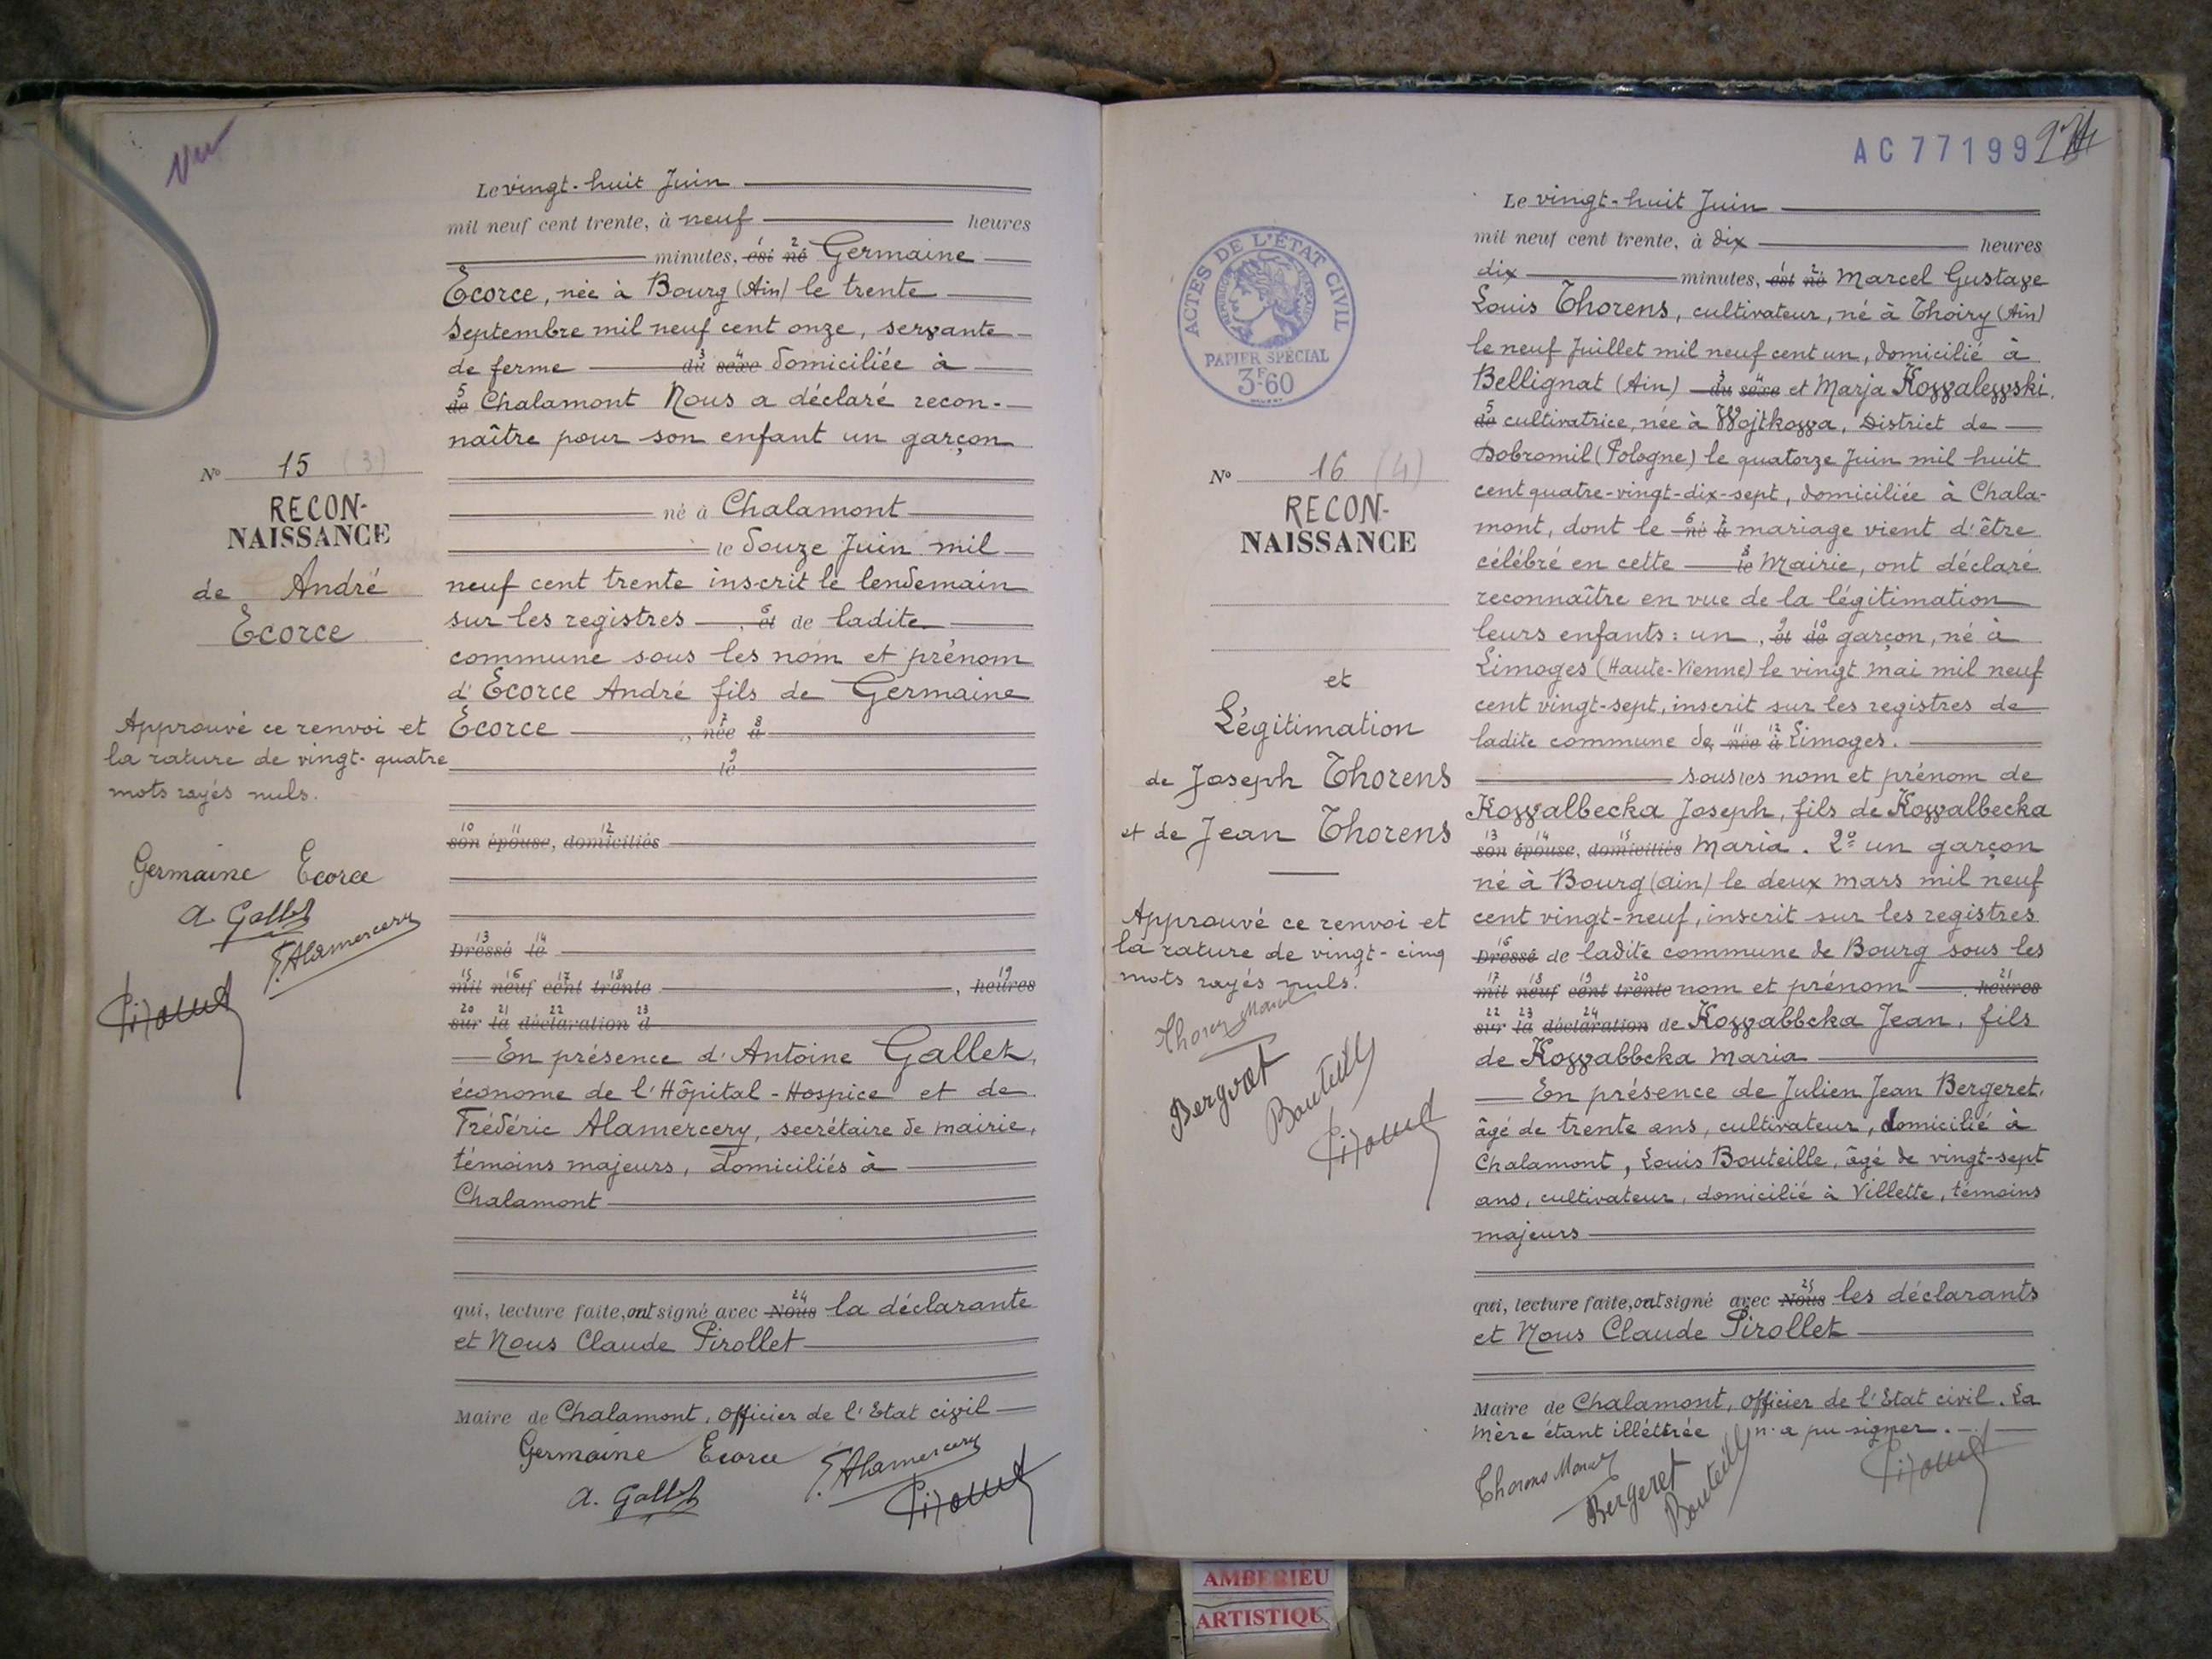 Vu
Le vingt-huit Juin
mil neuf cent trente, à neuf heures
minutes, est né Germaine
Ecorce, née à Bourg (Ain) le trente
Septembre mil neuf cent onze, servante
de ferme du sexe domiciliée à
de Chalamont Nous a déclaré recon-
naître pour son enfant un garçon
né à Chalamont
le douze Juin mil
neuf cent trente inscrit le lendemain
sur les registres, et de ladite
commune sous les nom et prénom
d'Ecorce André fils de Germaine
Ecorce, née à
le
son épouse, domiciliés
Dressé le
mil neuf cent trente, heures
sur la déclaration d
En présence d'Antoine Gallet,
économe de l'Hôpital-Hospice et de
Frédéric Alamercery, secrétaire de mairie,
témoins majeurs, domiciliés à
Chalamont
qui, lecture faite, ont signé avec Nous la déclarante
et Nous Claude Pirollet
Maire de Chalamont, Officier de l'Etat civil
Germaine Ecorce
F. Alamercery
A. Gallet
Pirollet
N° 15 (3)
RECON-
NAISSANCE
de André
Ecorce
Approuvé ce renvoi et
la rature de vingt-quatre
mots rayés nuls.
Germaine Ecorce
A. Gallet
F. Alamercery
Pirollet
AC 77199
ACTES DE L'ÉTAT CIVIL
PAPIER SPÉCIAL
3F60
N° 16 (4)
RECON-
NAISSANCE
et
Légitimation
de Joseph Thorens
et de Jean Thorens
Approuvé ce renvoi et
la rature de vingt-cinq
mots rayés nuls.
Thorens Marcel
Bergeret
Bouteille
Pirollet
Le vingt-huit Juin
mil neuf cent trente, à dix heures
dix minutes, est né Marcel Gustave
Louis Thorens, cultivateur, né à Thoiry (Ain)
le neuf Juillet mil neuf cent un, domicilié à
Bellignat (Ain) du sexe et Marja Kowalewski,
de cultivatrice, née à Wojtkowa, District de
Dobromil (Pologne) le quatorze Juin mil huit
cent quatre-vingt-dix-sept, domiciliée à Chala-
mont, dont le né à mariage vient d'être
célébré en cette le Mairie, ont déclaré
reconnaître en vue de la légitimation
leurs enfants: un, et de garçon, né à
Limoges (Haute-Vienne) le vingt mai mil neuf
cent vingt-sept, inscrit sur les registres de
ladite commune de, née à Limoges.
sous les nom et prénom de
Kowalbecka Joseph, fils de Kowalbecka
son épouse, domiciliés Maria. 2° un garçon
né à Bourg (ain) le deux mars mil neuf
cent vingt-neuf, inscrit sur les registres
Dressé de ladite commune de Bourg sous les
mil neuf cent trente nom et prénom, heures
sur la déclaration de Kowabbcka Jean, fils
de Kowabbcka Maria
En présence de Julien Jean Bergeret,
âgé de trente ans, cultivateur, domicilié à
Chalamont, Louis Bouteille, âgé de vingt-sept
ans, cultivateur, domicilié à Villette, témoins
majeurs
qui, lecture faite, ont signé avec Nous les déclarants
et Nous Claude Pirollet
Maire de Chalamont, Officier de l'Etat civil. La
Mère étant illéttrée n'a pu signer.
Thorens Marcel
Bergeret
Bouteille
Pirollet
AMBERIEU
ARTISTIQU